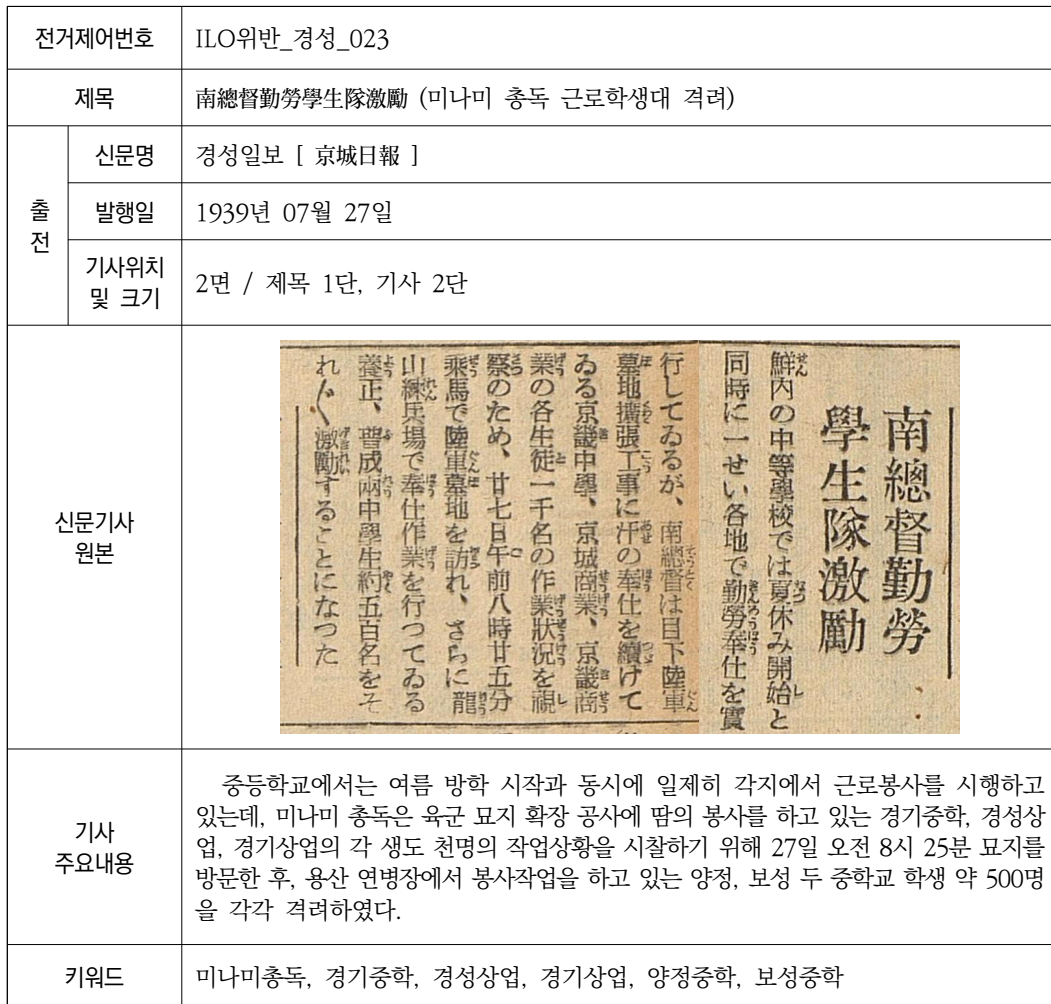 전거제어번호
ILO위반_경성_023
제목
南總督勤勞學生隊激勵 (미나미 총독 근로학생대 격려)
출전
신문명
경성일보 [ 京城日報 ]
발행일
1939년 07월 27일
기사위치
및 크기
2면 / 제목 1단, 기사 2단
신문기사
원본
南總督勤勞
學生隊激勵
鮮内の中等學校では夏休み開始と
同時に一せい各地で勤勞奉仕を實
行してゐるが、南總督は目下陸軍
墓地擴張工事に汗の奉仕を續けて
ゐる京畿中學、京城商業、京畿商
業の各生徒一千名の作業狀況を視
察のため、廿七日午前八時廿五分
乘馬で陸軍墓地を訪れ、さらに龍
山練兵場で奉仕作業を行つてゐる
養正、普成兩中學生約五百名をそ
れ〲激勵することになつた
기사
주요내용
중등학교에서는 여름 방학 시작과 동시에 일제히 각지에서 근로봉사를 시행하고
있는데, 미나미 총독은 육군 묘지 확장 공사에 땀의 봉사를 하고 있는 경기중학, 경성상
업, 경기상업의 각 생도 천명의 작업상황을 시찰하기 위해 27일 오전 8시 25분 묘지를
방문한 후, 용산 연병장에서 봉사작업을 하고 있는 양정, 보성 두 중학교 학생 약 500명
을 각각 격려하였다.
키워드
미나미총독, 경기중학, 경성상업, 경기상업, 양정중학, 보성중학